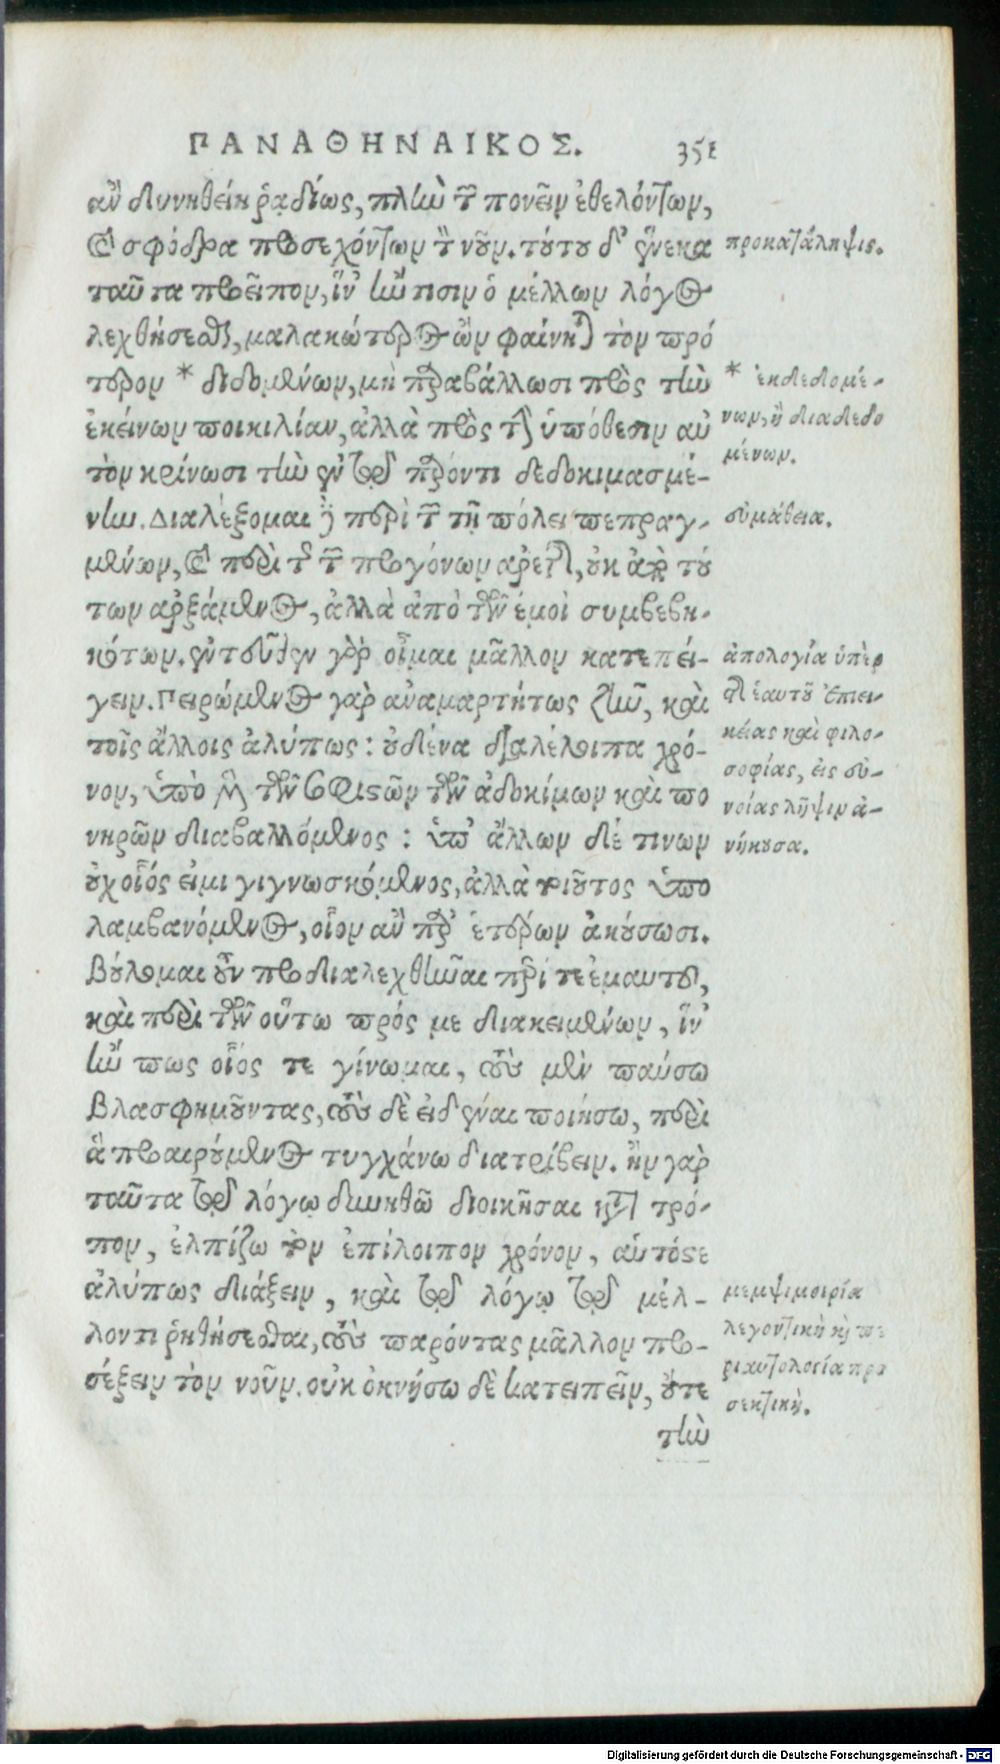 ΠΑΝΑΘΗΝΑΙΚΟΣ. 351
ἂν δυνηθείη ῥᾳδίως, πλὴν τῶν πονεῖν ἐθελόντων,
καὶ σφόδρα προσεχόντων τὸν νοῦν. τούτου δ' ἕνεκα
ταῦτα προεῖπον, ἵν' ἤν τισιν ὁ μέλλων λόγος
λεχθήσεσθαι, μαλακώτερος ὢν φαίνηται τὸν πρό
τερον * διδομένων, μὴ παραβάλλωσι πρὸς τὴν
ἐκείνων ποικιλίαν, ἀλλὰ πρὸς τὴν ὑπόθεσιν αὐ
τὸν κρίνωσι τὴν ἐν τῷ παρόντι δεδοκιμασμέ-
νην. Διαλέξομαι δὲ περὶ τῶν τῇ πόλει πεπραγ-
μένων, καὶ περὶ τῆς τῶν προγόνων ἀρετῆς, οὐκ ἀπὸ τού
των ἀρξάμενος, ἀλλὰ ἀπὸ τῶν ἐμοὶ συμβεβη-
κότων. ἐντεῦθεν γὰρ οἶμαι μᾶλλον κατεπεί-
γειν. Πειρώμενος γὰρ ἀναμαρτήτως ζῆν, καὶ
τοῖς ἄλλοις ἀλύπως: οὐδένα διαλέλοιπα χρό-
νον, ὑπὸ μὲν τῶν σοφιστῶν τῶν ἀδοκίμων καὶ πο
νηρῶν διαβαλλόμενος: ὑπ' ἄλλων δέ τινων
οὐχ οἷός εἰμι γιγνωσκόμενος, ἀλλὰ τοιοῦτος ὑπο
λαμβανόμενος, οἷον ἂν παρ' ἑτέρων ἀκούσωσι.
Βούλομαι οὖν προδιαλεχθῆναι περί τε ἐμαυτοῦ,
καὶ περὶ τῶν οὕτω πρός με διακειμένων, ἵν'
ἤν πως οἷός τε γίνωμαι, τοὺς μὲν παύσω
βλασφημοῦντας, τοὺς δὲ εἰδέναι ποιήσω, περὶ
ἃ προαιρούμενος τυγχάνω διατρίβειν. ἢν γὰρ
ταῦτα τῷ λόγῳ δυνηθῶ διοικῆσαι κατὰ τρό-
πον, ἐλπίζω τὸν ἐπίλοιπον χρόνον, αὐτός τε
ἀλύπως διάξειν, καὶ τῷ λόγῳ τῷ μέλ-
λοντι ῥηθήσεσθαι, τοὺς παρόντας μᾶλλον προ-
σέξειν τὸν νοῦν. οὐκ ὀκνήσω δὲ κατειπεῖν, οὔτε
τὴν
προκατάληψις.
* ἐκδεδομέ-
νων, ἢ διαδεδο
μένων.
εὐμάθεια.
ἀπολογία ὑπὲρ
τῆς ἑαυτοῦ ἐπιει-
κείας καὶ φιλο-
σοφίας, εἰς εὐ-
νοίας λῆψιν ἀ-
νήκουσα.
μεμψιμοιρία
λεγοντικὴ καὶ πε
ριαυτολογία προ
σεκτική.